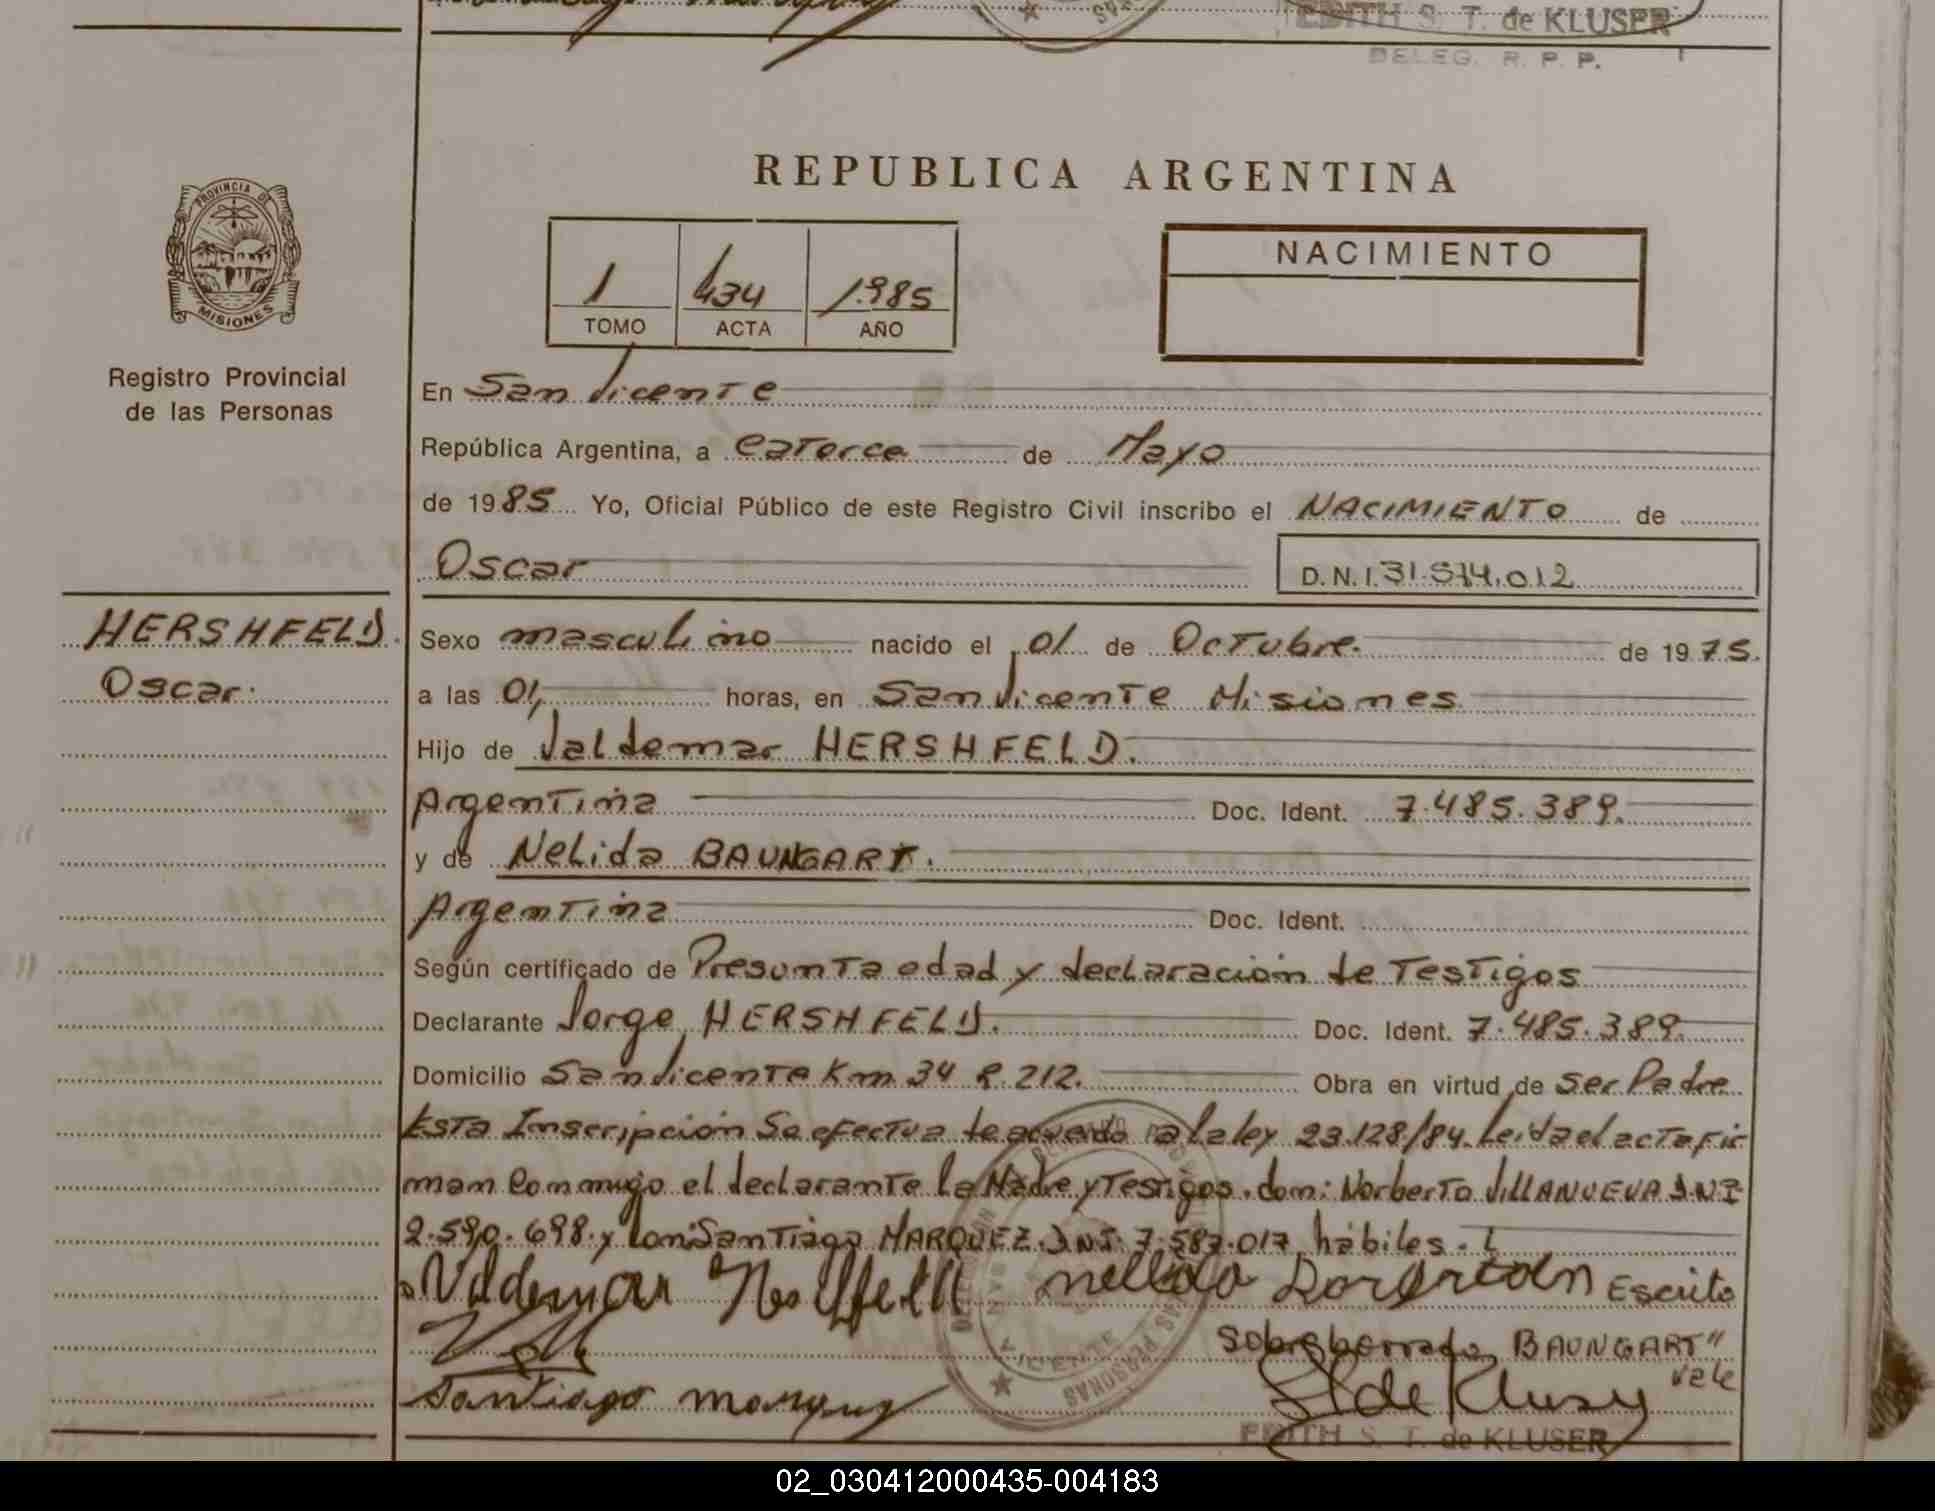 EDITH S. T. de KLUSER
DELEG. R. P. P.
REPUBLICA ARGENTINA
PROVINCIA DE
MISIONES
Registro Provincial
de las Personas
1 434 1985
TOMO ACTA AÑO
NACIMIENTO
En San Vicente
República Argentina, a Catorce de Mayo
de 1985 Yo, Oficial Público de este Registro Civil inscribo el NACIMIENTO de
Oscar D.N.I. 31.574.012
HERSHFELD
Oscar.
Sexo masculino nacido el 01 de Octubre. de 1975.
a las 01, horas, en San Vicente Misiones
Hijo de Valdemar HERSHFELD.
Argentina Doc. Ident. 7.485.389.
y de Nelida BAUNGART.
Argentina Doc. Ident.
Según certificado de Presunta edad y declaración de Testigos
Declarante Jorge HERSHFELD. Doc. Ident. 7.485.389.
Domicilio San Vicente Km 34 R. 212. Obra en virtud de Ser Padre
Esta Inscripción Se efectua de acuerdo a la ley 23.128/84. Leida el acta fir
man Conmigo el declarante la Madre y Testigos. don: Norberto VILLANUEVA D.N.I
2.590.698. y don: Santiago MARQUEZ. D.N.I. 7.587.017 hábiles.
Valdemar Escrito
Sobreborrado BAUNGART"
Vale
Santiago
de Kluser
EDITH S. T. de KLUSER
02_030412000435-004183